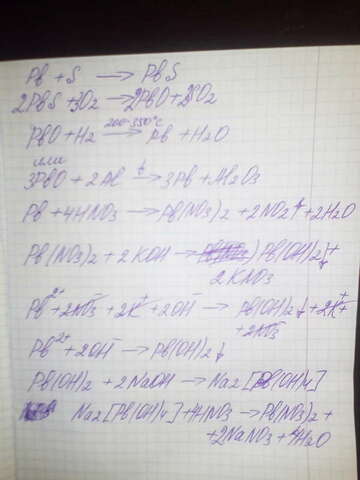 Pb + S → PbS
2PbS + 3O2 → 2PbO + 2SO2
PbO + H2 200-350°C → Pb + H2O
или
3PbO + 2Al t → 3Pb + Al2O3
Pb + 4HNO3 → Pb(NO3)2 + 2NO2↑ + 2H2O
Pb(NO3)2 + 2KOH → Pb(OH)2↓+
2KNO3
Pb2+ + 2NO3- + 2K+ + 2OH- → Pb(OH)2↓ + 2K+ +
+ 2NO3-
Pb2+ + 2OH- → Pb(OH)2↓
Pb(OH)2 + 2NaOH → Na2[Pb(OH)4]
Na2[Pb(OH)4] + 4HNO3 → Pb(NO3)2 +
+ 2NaNO3 + 4H2O